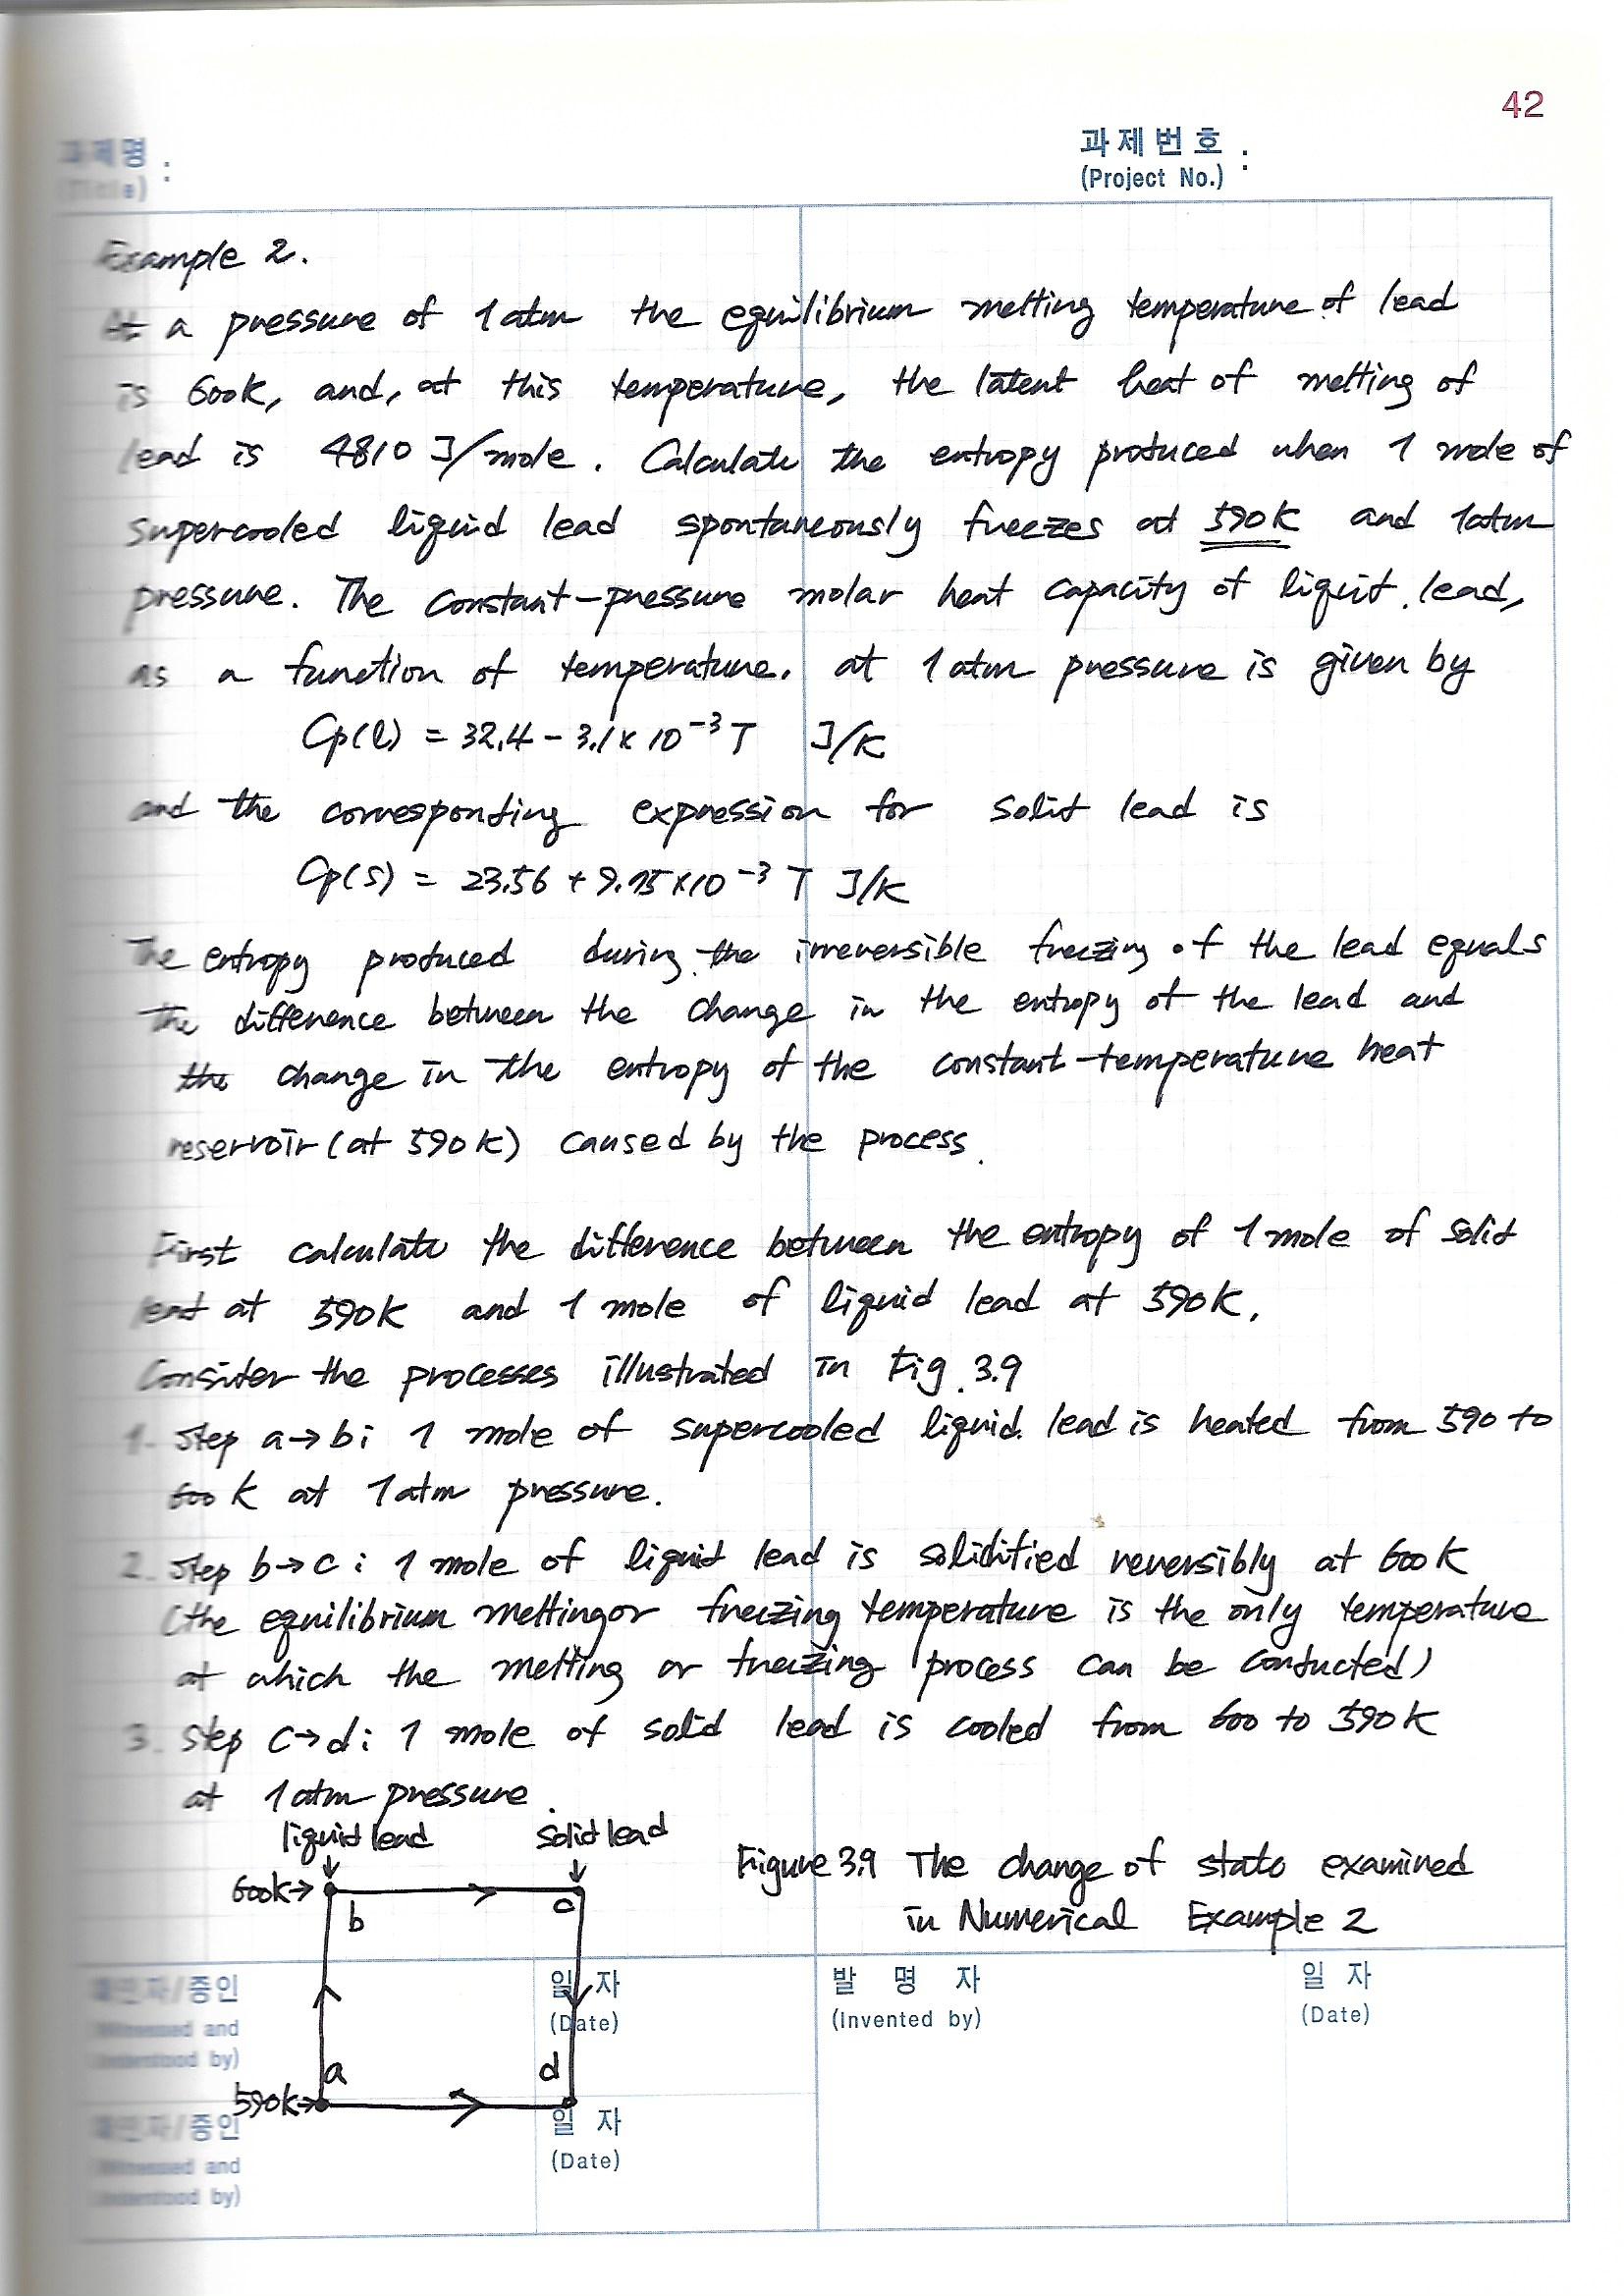 42
과제명 :
(Title)
과제번호 :
(Project No.)
Example 2.
At a pressure of 1 atm the equilibrium melting temperature of lead
is 600K, and, at this temperature, the latent heat of melting of
lead is 4810 J/mole. Calculate the entropy produced when 1 mole of
supercooled liquid lead spontaneously freezes at 590K and 1atm
pressure. The constant-pressure molar heat capacity of liquid lead,
as a function of temperature. at 1 atm pressure is given by
Cp(l) = 32.4 - 3.1 x 10⁻³ T J/K
and the corresponding expression for solid lead is
Cp(s) = 23.56 + 9.75 x 10⁻³ T J/K
The entropy produced during the irreversible freezing of the lead equals
the difference between the change in the entropy of the lead and
the change in the entropy of the constant-temperature heat
reservoir (at 590K) caused by the process.
First calculate the difference between the entropy of 1 mole of solid
lead at 590K and 1 mole of liquid lead at 590K.
Consider the processes illustrated in Fig. 3.9
1. Step a→b: 1 mole of supercooled liquid lead is heated from 590 to
600 K at 1 atm pressure.
2. Step b→c: 1 mole of liquid lead is solidified reversibly at 600K
(the equilibrium melting or freezing temperature is the only temperature
at which the melting or freezing process can be conducted)
3. Step c→d: 1 mole of solid lead is cooled from 600 to 590K
at 1 atm pressure.
liquid lead
solid lead
600K→
b
c
Figure 3.9 The change of state examined
in Numerical Example 2
a
d
590K→
확인자/증인
(Witnessed and
Understood by)
일 자
(Date)
발 명 자
(Invented by)
일 자
(Date)
확인자/증인
(Witnessed and
Understood by)
일 자
(Date)